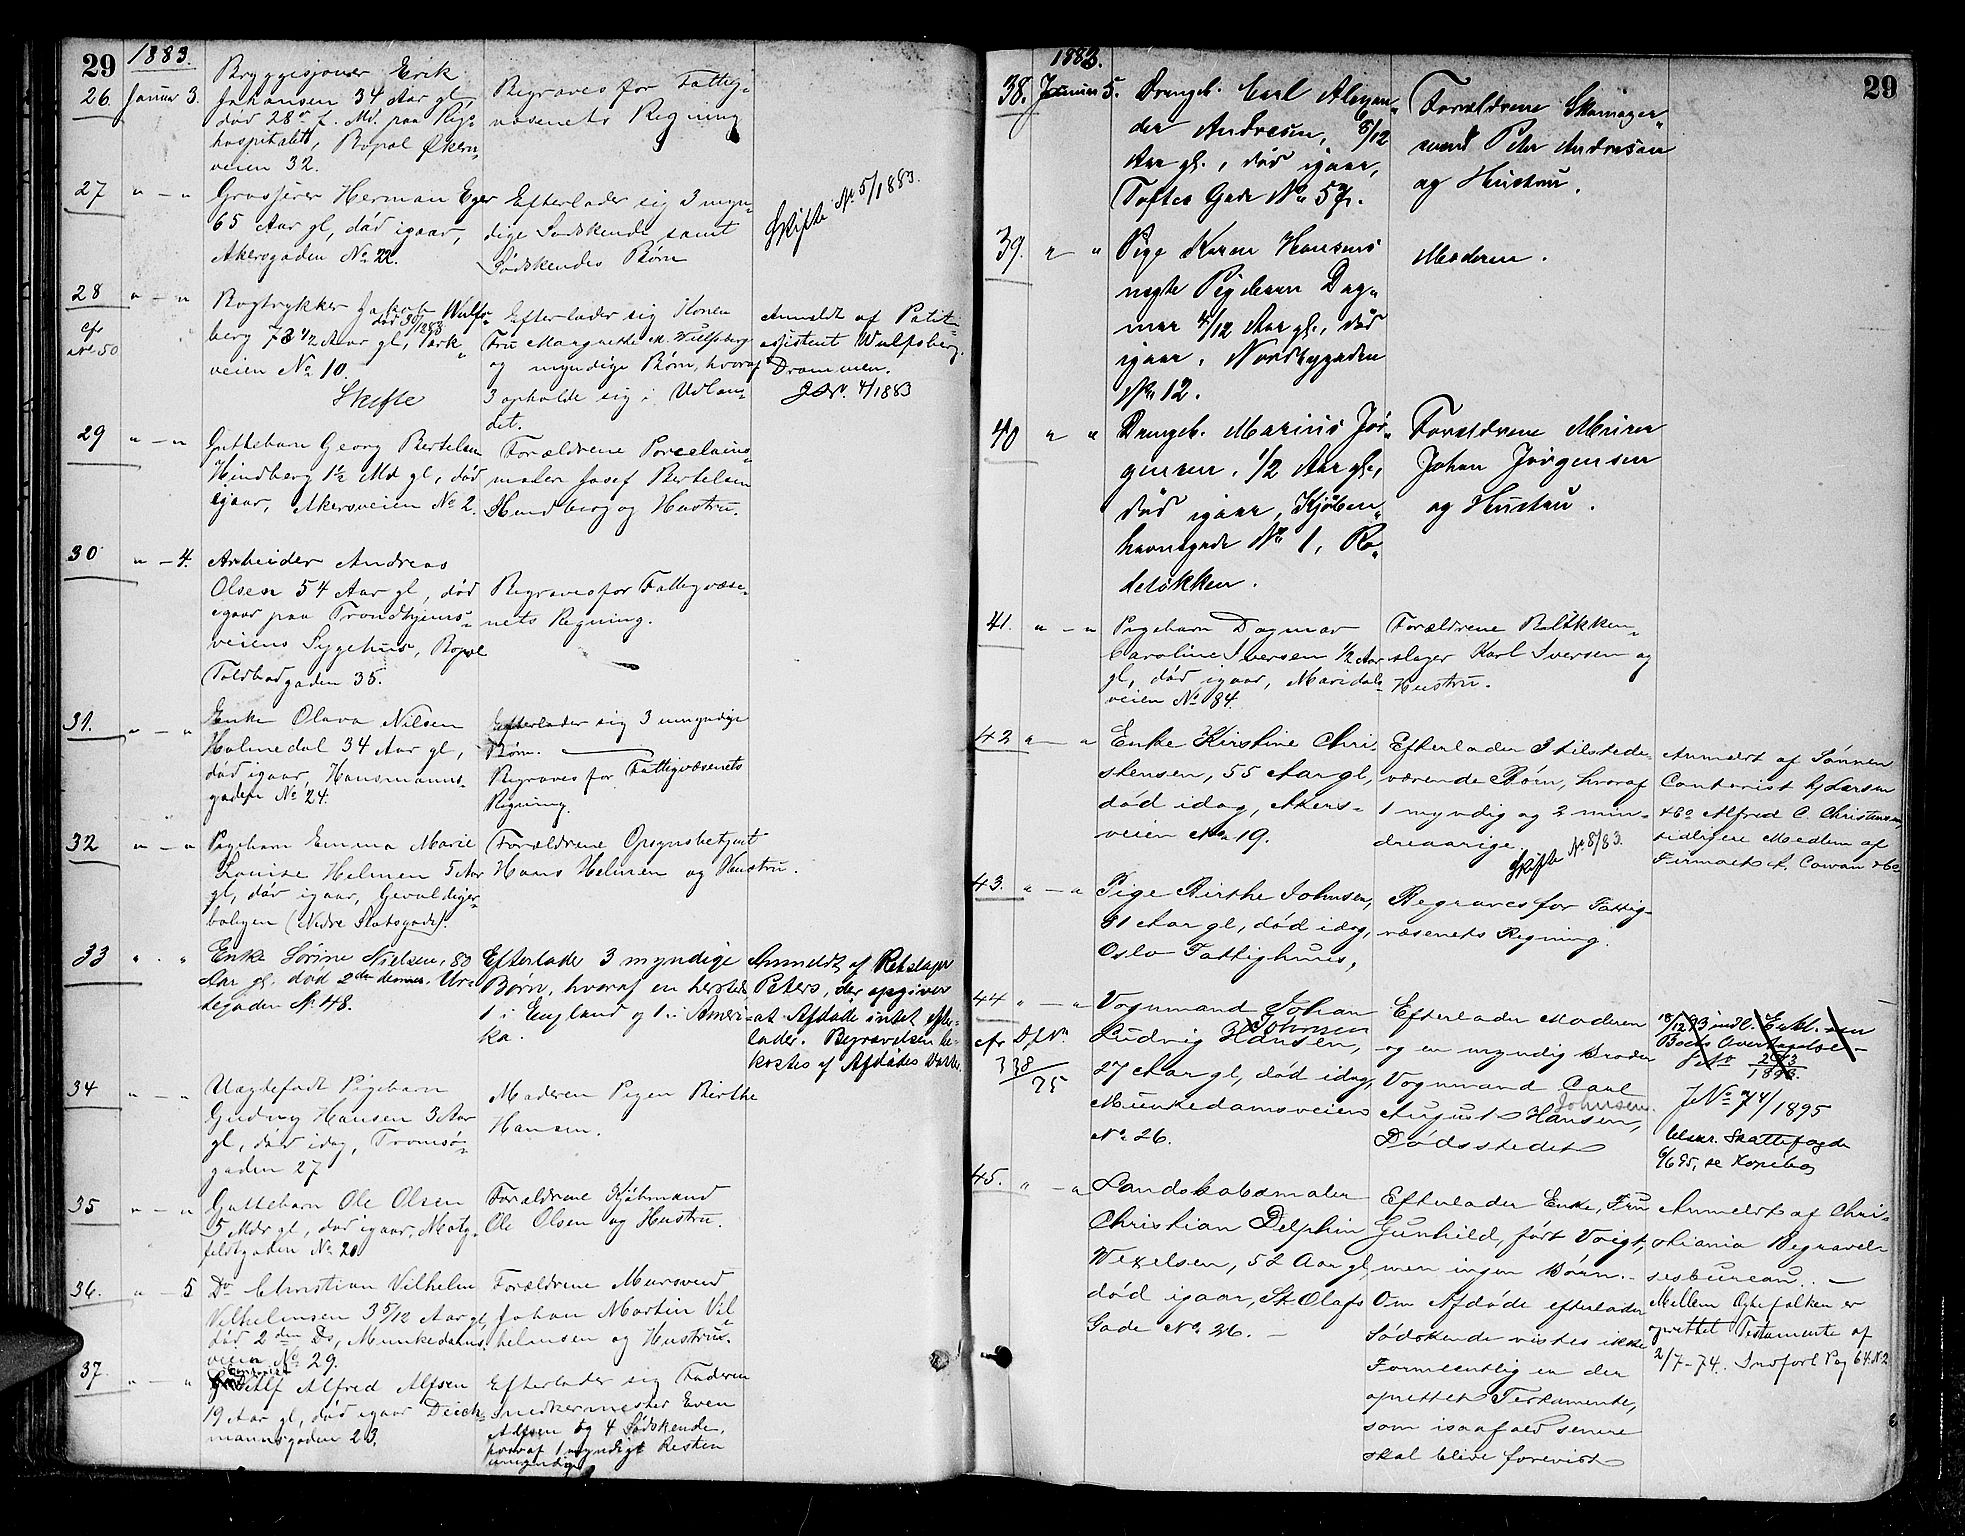 29
1883.
26. Januar 3.
Bryggesjouer Erik
Johansen 34 Aar gl,
død 28de f. Md. paa Rigs
hospitalet, Bopæl Økern
veien 32.
Begraves for Fattig-
væsenets Regning
27 " — "
Grosserer Herman Eger
65 Aar gl, død igaar,
Akersgaden No 22.
Efterlader sig 3 myn-
dige Sødskende samt
Sødskendes Børn
Skifte No 5/1883.
28 " — "
cfr
50
Bogtrykker Jakob Wulfs-
død 30/12 83
berg 73 1/2 Aar gl, Park-
veien No 10.
Skifte
Efterlader sig Konen
Fru Margrethe M. Wulfsberg
og myndige Børn, hvoraf
3 opholde sig i Udlan-
det.
Anmeldt af Politi-
assistent Wulfsberg.
Drammen.
4/1883
29 " — "
Guttebarn Georg Bertelsen
Hindberg 1 1/2 Md gl, død
igaar, Akersveien No 2.
Forældrene Porcelains-
maler Josef Bertelsen
Hindberg og Hustru.
30 " — 4.
Arbeider Andreas
Olsen 54 Aar gl, død
igaar paa Trondhjems-
veiens Sygehus, Bopæl
Toldbodgaden 35.
Begraves for Fattigvæse-
nets Regning.
31. " — "
Enke Olava Nilsen
Holmedal 34 Aar gl,
død igaar, Hausmanns-
gaden No 24.
Efterlader sig 3 umyndige
Børn. —
Begraves for Fattigvæsenets
Regning.
32 " — "
Pigebarn Emma Marie
Louise Helmen 5 Aar
gl, dør igaar, Gevaldiger-
boligen (Nedre Slotsgade).
Forældrene Opsynsbetjent
Hans Helmen og Hustru.
33 " . "
Enke Sørine Nielsen, 83
Aar gl. død 2den dennes. Ur-
tegaden No 48.
Efterlader 3 myndige
Børn, hvoraf en herstede
1 i England og 1 i Ameri-
ka.
Anmeldt af
Peters, der opgiver
at Afdøde intet efter-
lader. Begravelsen be-
kostes af Afdødes Datter.
34 " — "
Uægtefødt Pigebarn
Gudny Hansen 3 Aar
gl, død idag, Tromsø-
gaden 27
Moderen Pigen Birthe
Hansen.
35 " — "
Guttebarn Ole Olsen
5 Mdr gl, død igaar, Motz-
feldtgaden No 20
Forældrene Kjøbmand
Ole Olsen og Hustru.
36. " — 5
Do Christian Vilhelm
Vilhelmsen 3 5/12 Aar gl,
død 2den Ds, Munkedams-
veien No 29.
Forældrene Mursvend
Johan Martin Vil-
helmsen og Hustru.
37. " — "
Alf Alfred Alfsen
19 Aar gl, død igaar Deich-
mannsgaden 23.
Efterlader sig Faderen
Snedkermester Even
Alfsen og 4 Sødskende,
hvoraf 1 myndig Resten
umyndige
29
1883.
38. Januar 5.
Drengeb. Carl Alexan-
der Andresen, 6 5/12
Aar gl., død igaar,
Toftes Gade No 57.
Forældrene Skomager-
svend Peter Andresen
og Hustru.
39. " "
Pige Karen Hansens
uægte Pigebarn Dag-
mar 4/12 Aar gl., død
igaar. Nordbygaden
No 12.
Moderen.
40 " "
Drengeb. Marius Jør-
gensen. 1/2 Aar gl.,
død igaar, Kjøben-
havnsgade No 1, Ro-
deløkken.
Forældrene Murer
Johan Jørgensen
og Hustru.
41. " — "
Pigebarn Dagmar
Caroline Iversen 1/2 Aar
gl, død igaar, Maridals-
veien No 84.
Forældrene Blikken-
slager Karl Iversen og
Hustru.
42 " — "
Enke Kirstine Chri-
stensen, 55 Aar gl,
død idag, Akers-
veien No 19.
Efterlader 3 tilstede-
værende Børn, hvoraf
1 myndig og 2 min-
dreaarige.
Skifte No 8/83.
Anmeldt af Sønnen
Contorist hj Larsen
& Co Alfred C. Christensen,
tidligere Medlem af
Firmaet A. Cowan & Co
43. " — "
Pige Birthe Johnsen,
81 Aar gl, død idag,
Oslo Fattighuus,
Begraves for Fattig-
væsenets Regning.
44 " — "
cfr D No
338/95
Vognmand Johan
Johnsen
Ludvig Hansen,
27 Aar gl, død idag,
Munkedamsveien
No 26.
Efterlader Moderen
og en myndig Broder
Vognmand Carl
Johnsen.
August Hansen,
Dødsstedet
18/12 93 indl.
JNo 74/1895
Skattefogde
6/6 95, se Kopibog
45. " — "
Landskabsmaler
Christian Delphin
Wexelsen, 52 Aar gl,
død igaar, St. Olafs
Gade No 26. —
Efterlader Enke, Fru
Gunhild, født Voigt,
men ingen Børn. –
Om Afdøde efterlader
Sødskende vistes ikke
Formentlig er der
oprettet Testamente,
som isaafald senere
skal blive forevist
Anmeldt af Chri-
stiania Begravel-
sesbureau. —
Mellem Ægtefolkene er
oprettet Testamente af
2/7-74. Indført Pag 64 N 2